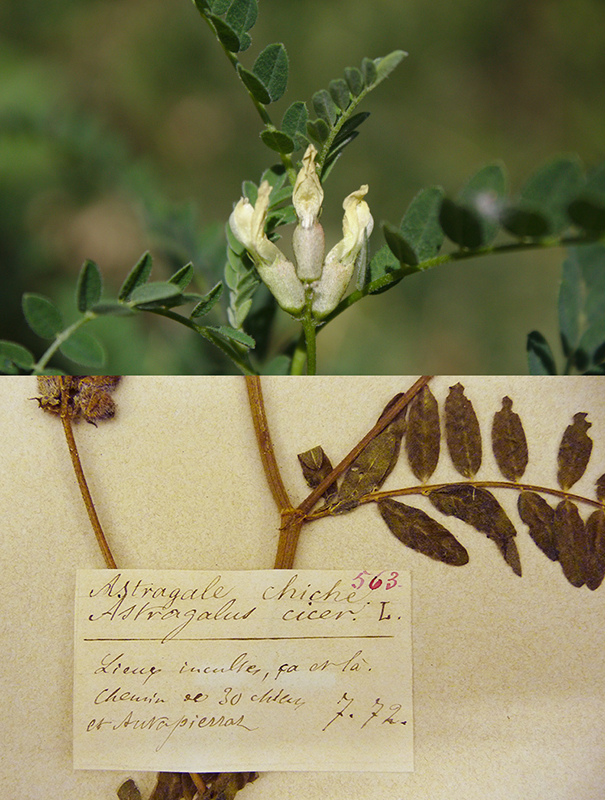 563
Astragale chiche
Astragalus cicer. L.
Lieux incultes, ça et là.
Chemin de 30
et 7.72.